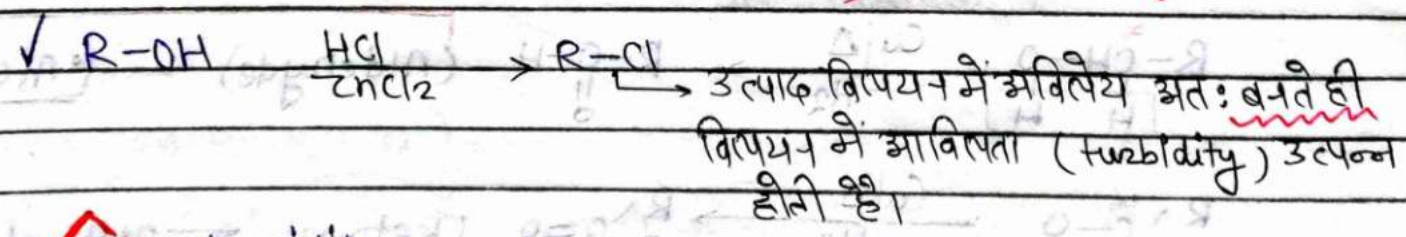 ✓ R-OH HCl/ZnCl2 → R-Cl
↳ उत्पाद विलयन में अविलेय अत: बनते ही
विलयन में आविलता (turbidity) उत्पन्न
होती है।